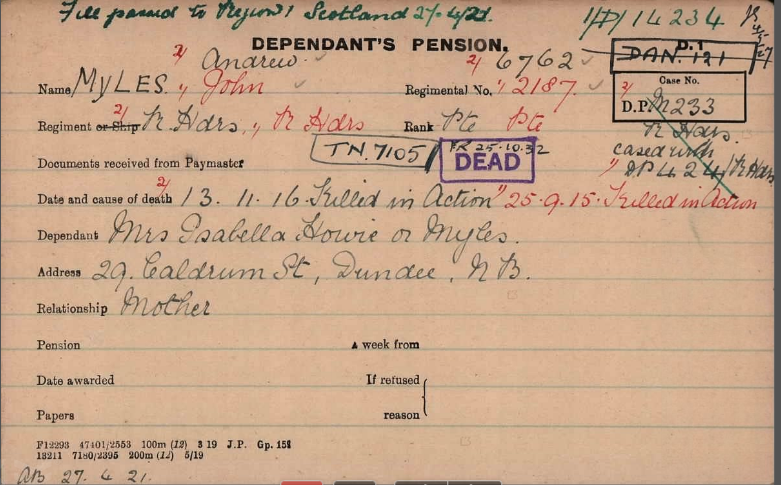 File passed to Region 1 Scotland 27.4/21. 1/D/14234
DEPENDANT'S PENSION.
D.1
DAN. 121
2/ Andrew 2/ 6762
Name MYLES. " John Regimental No. " 2187
Case No.
2/ D.P. M233
Regiment or Ship 2/ R. Hdrs, " R Hdrs Rank Pte Pte
R Hdrs.
cased with
" DP 424/R Hdrs
Documents received from Paymaster TN.7105 FR 25.10.32
DEAD
Date and cause of death 2/ 13. 11. 16. Killed in Action " 25.9.15. Killed in Action
Dependant Mrs Isabella Howie or Myles.
Address 29. Caldrum St, Dundee, N.B.
Relationship Mother
Pension A week from
Date awarded If refused
Papers reason
F12293 47401/2553 100m (12) 3 19 J.P. Gp. 151
13211 7180/2395 200m (12) 5/19
AB 27. 4 21.